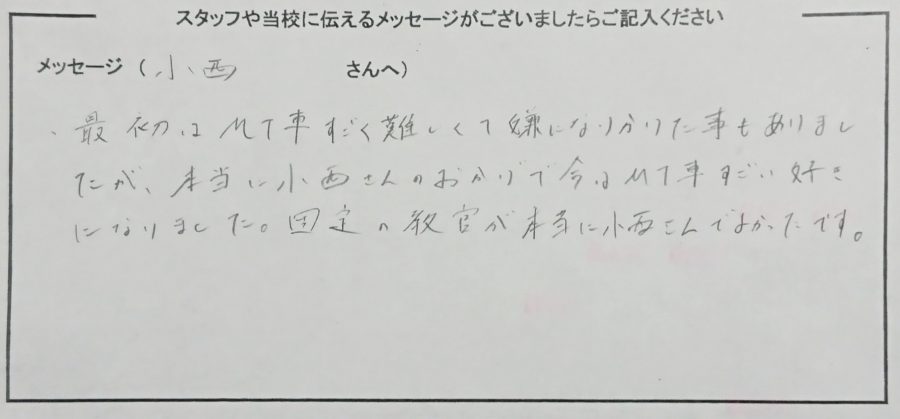 スタッフや当校に伝えるメッセージがございましたらご記入ください
メッセージ ( 小西 さんへ)
最初はMT車すごく難しくて嫌になりかけた事もありまし
たが、本当に小西さんのおかげで今はMT車すごい好き
になりました。固定の教官が本当に小西さんでよかったです。